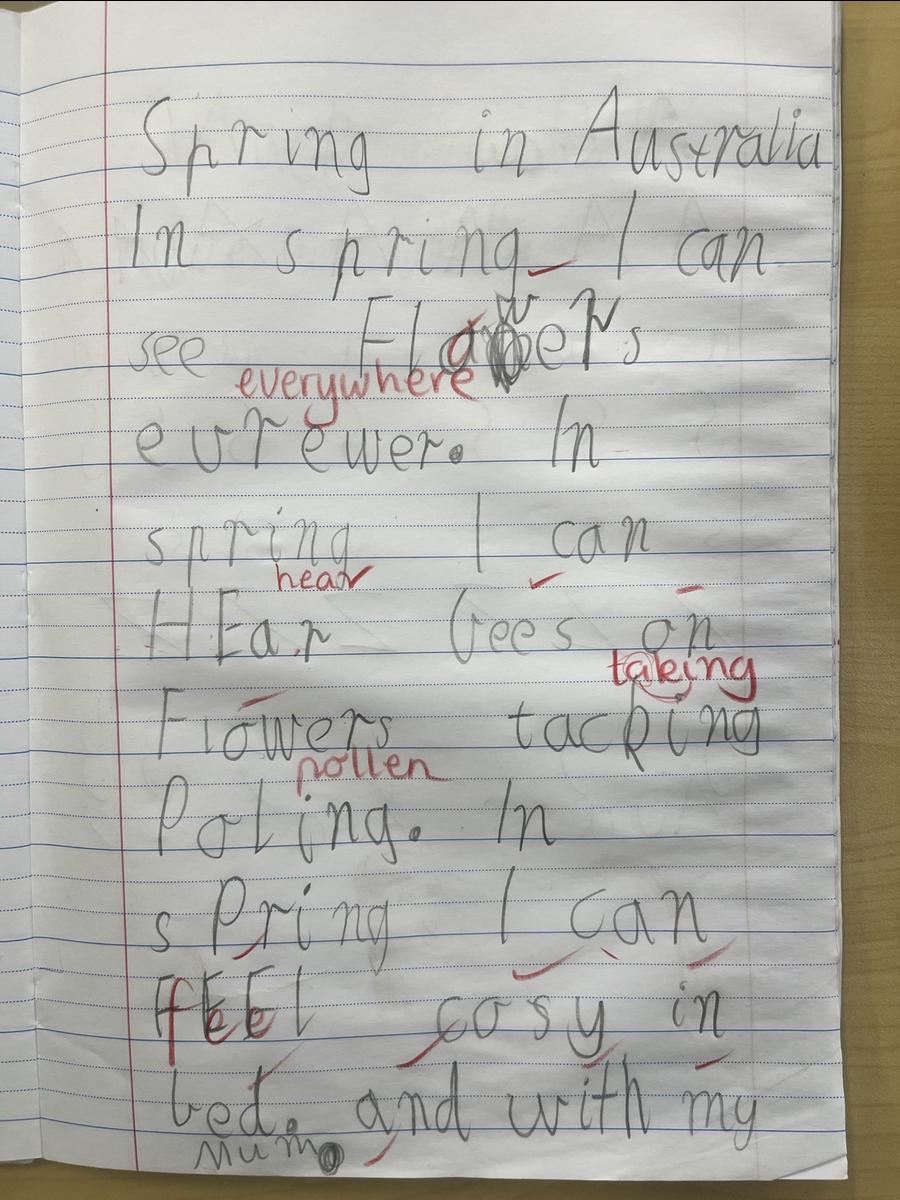 Spring in Australia
In spring I can
see Flowers
everywhere
evrewer. In
spring I can
hear
HEar bees on
taking
Flowers tacking
pollen
Poling. In
sPring I can
FEEl cosy in
bed. and with my
mum.